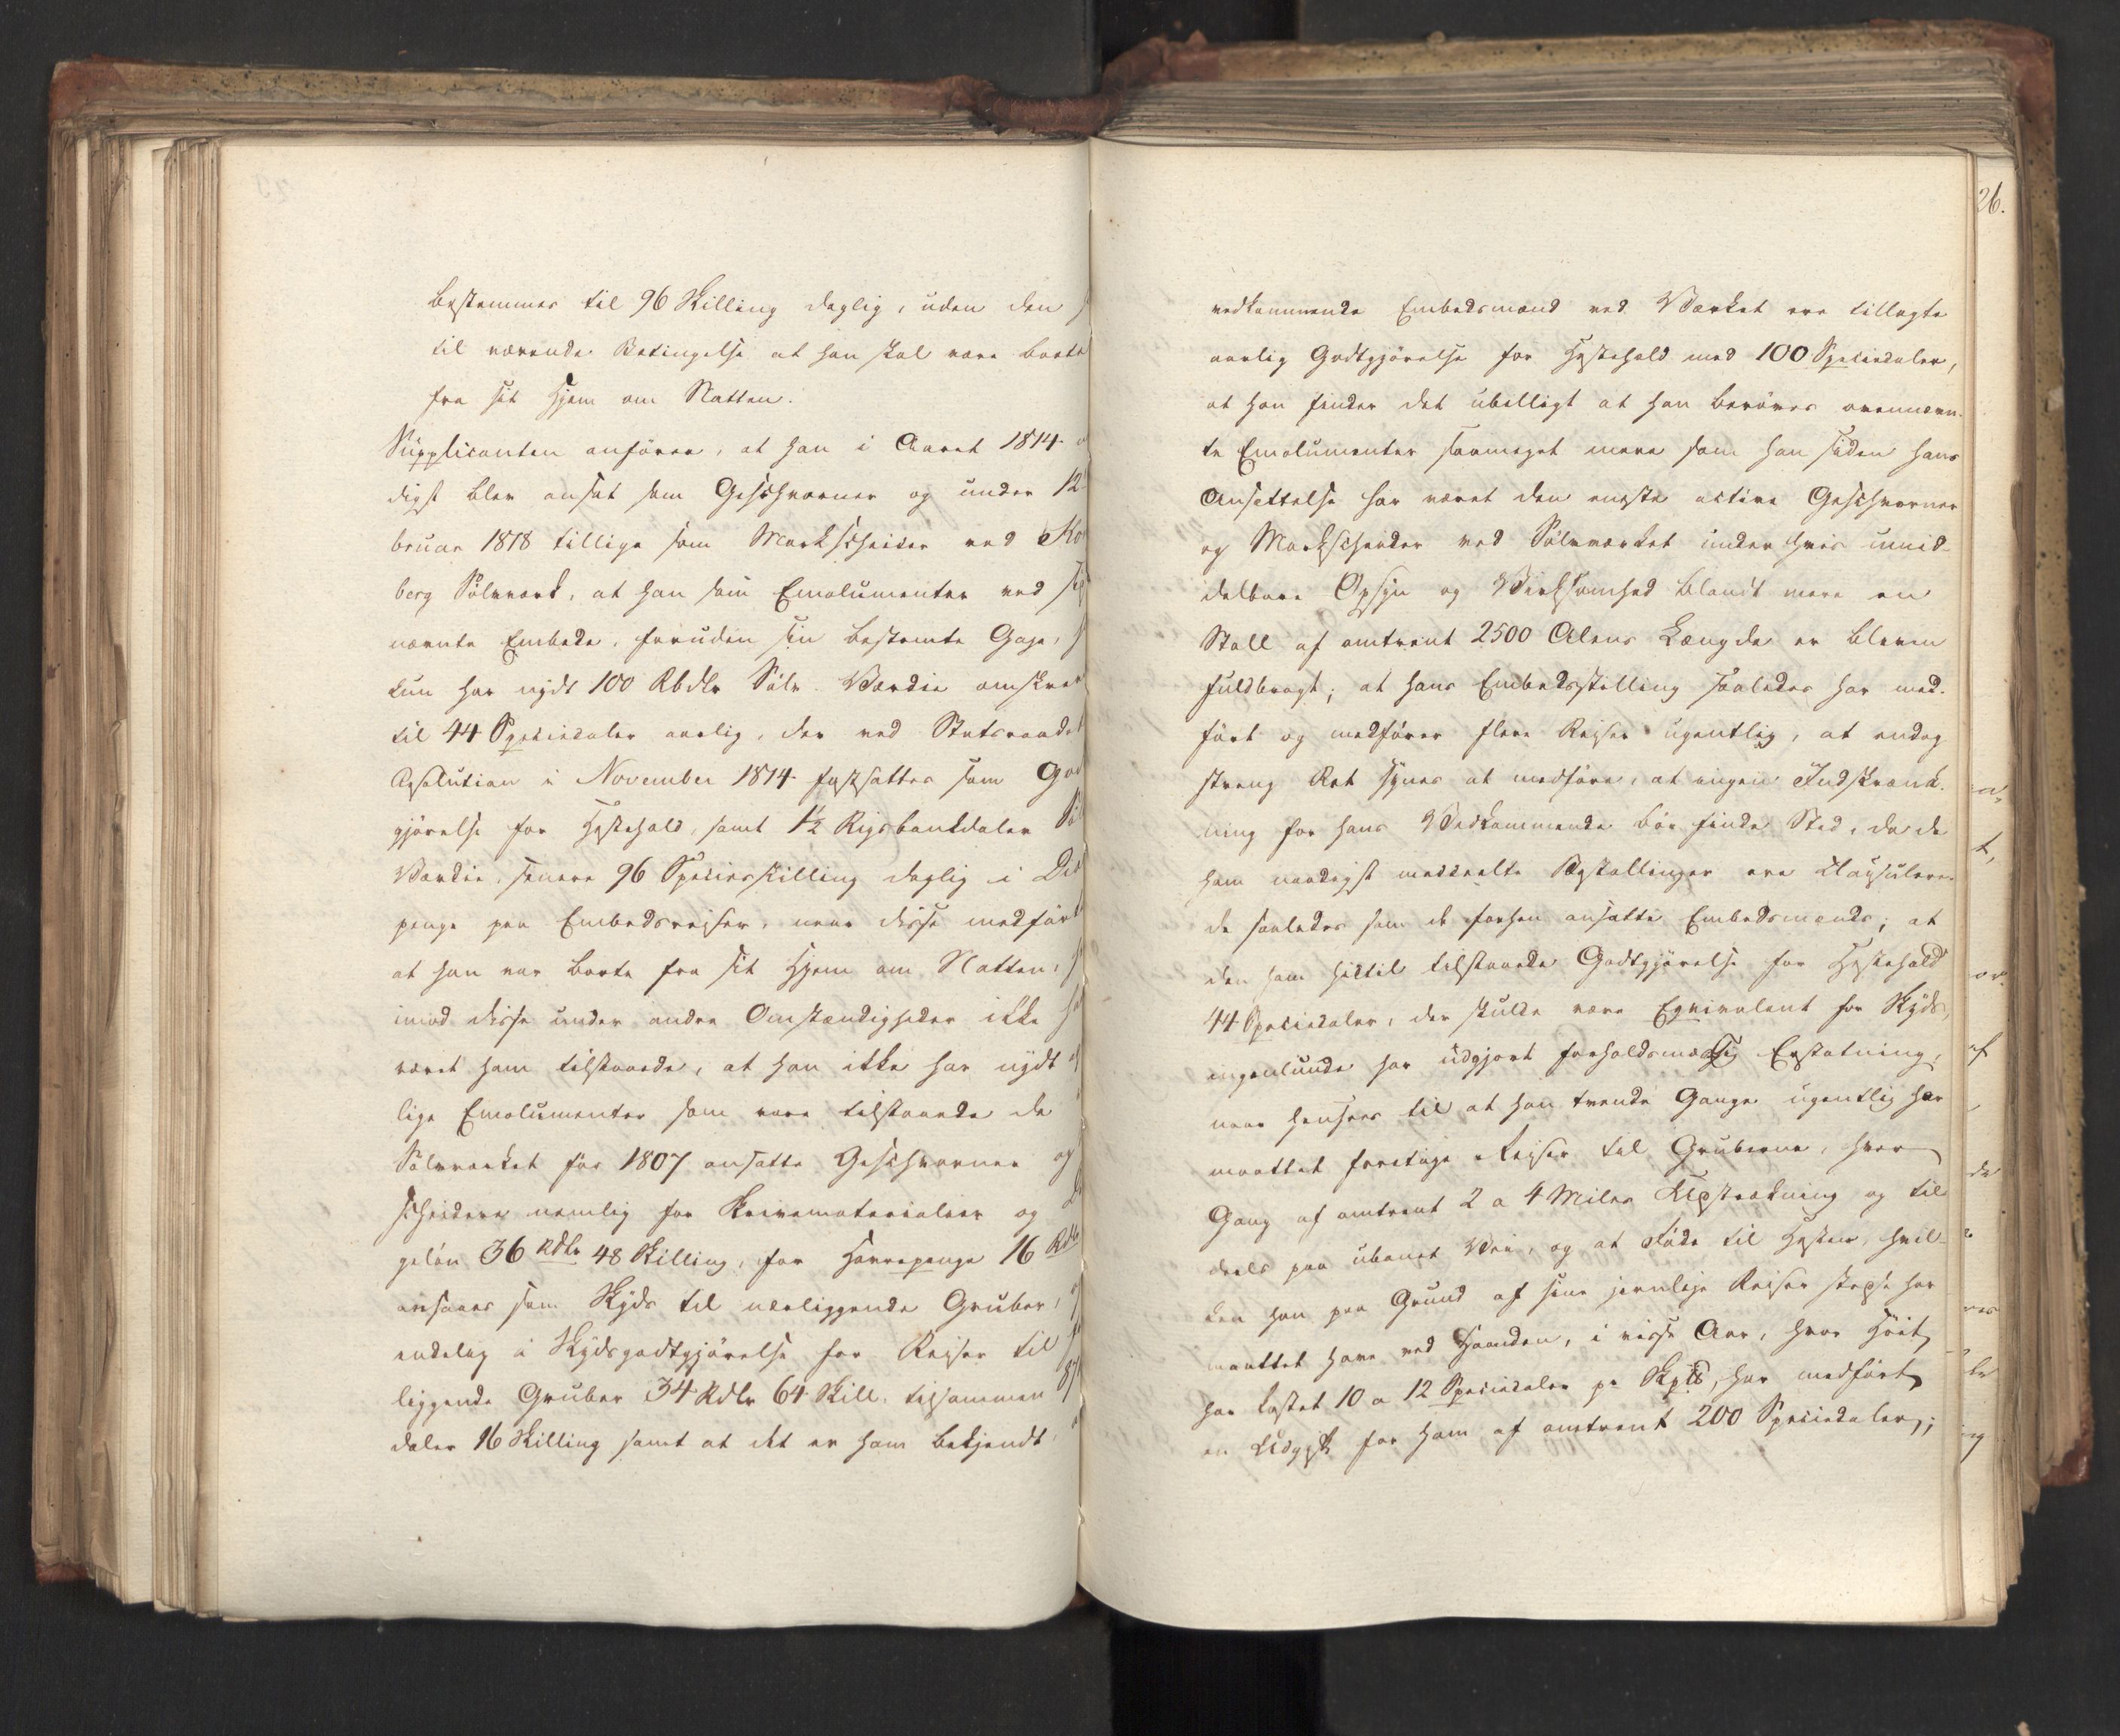 bestemmes til 96 Skilling daglig, uden den
til værende Betingelse at han skal være borte
fra sit Hjem om Natten.
Supplicanten anfører, at han i Aaret 1814
digst blev ansat som Geschworner og under 12
bruar 1818 tillige som Markscheider ved Ko
berg Sølvværk, at han som Emolumenter ved
nævnte Embede, foruden sin bestemte Gage,
kun har nydt 100 Rbdlr Sølv Værdie omskrev
til 44 Speciedaler aarlig, der ved Statsraadet
Resolution i November 1814 fastsattes som God
gjørelse for Hestehold, samt 1½ Rigsbankdaler Søl
Værdie, senere 96 Speciesskilling daglig i Diæt
penge paa Embedsreiser, naar disse medførte
at han var borte fra sit Hjem om Natten,
imod disse under andre Omstændigheder ikke ha
været ham tilstaaede, at han ikke har nydt
lige Emolumenter som vare tilstaaede de
Sølvværket før 1807 ansatte Geschworner og
scheidere nemlig for Skrivematerialier og
geløn 36 Rdlr 48 Skilling, for Herrepenge 16 Rdlr
ansaaes som Skyds til nærliggende Gruber,
endelig i Skydsgodtgjørelse for Reiser til
liggende Gruber 34 Rdlr 64 Skill. tilsammen 87
daler 16 Skilling samt at det er ham bekjendt
26.
vedkommende Embedsmænd ved Værket ere tillagte
aarlig Godtgjørelse for Hestehold med 100 Speciedaler,
at han finder det ubilligt at han berøves ovennævn-
te Emolumenter saameget mere som han siden hans
Ansættelse har været den eneste active Geschworner
og Markscheider ved Sølvværket under hvis umid-
delbare Opsyn og Virksomhed blandt mere en
Stoll af omtrent 2500 Alens Længde er bleven
fuldbragt; at hans Embedsstilling saaledes har med-
ført og medfører flere Reiser ugentlig, at endog
streng Ret synes at medføre, at ingen Indskrænk-
ning for hans Vedkommende bør finde Sted, da de
ham naadigst meddeelte Bestallinger ere clausulere-
de saaledes som de forhen ansatte Embedsmænds; at
den ham hidtil tilstaaede Godtgjørelse for Hestehold
44 Speciedaler, der skulde være Eqvivalent for Skyds,
ingenlunde har udgjort forholdsmæssig Erstatning,
naar hensees til at han trende Gange ugentlig har
maattet foretage Reiser til Gruberne, hver
Gang af omtrent 2 a 4 Miles Udstrækning og til
deels paa ubanet Vei, og at Føde til Hesten, hvil-
ken han paa Grund af sine jevnlige Reiser stedse har
maattet have ved Haanden, i visse Aar, hvor Høet
har kostet 10 a 12 Speciedaler pr Skp℔, har medført
en Udgift for ham af omtrent 200 Speciedaler;